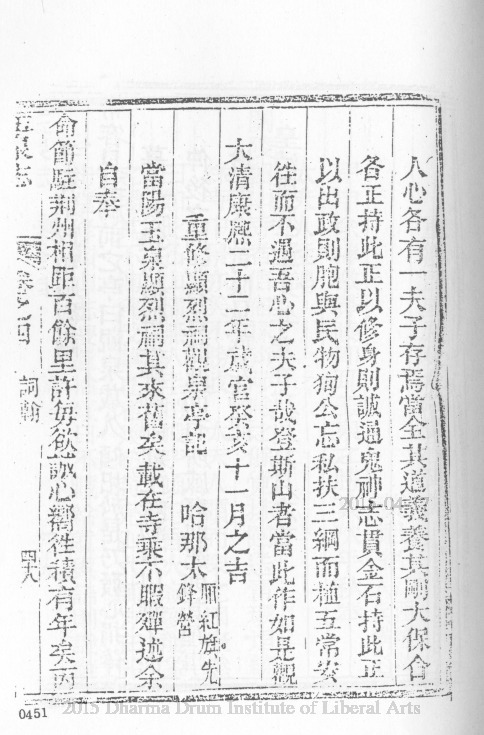 人心各有一夫子存焉當全其道義養其剛大保合
各正持此正以修身則誠通鬼神志貫金石持此正
以出政則胞與民物徇公忘私扶三綱而植五常安
往而不遇吾心之夫子哉登斯山者當此作如是觀
大清康熙二十二年歲官癸亥十一月之吉
重修顯烈祠觀泉亭記 哈那太 廂紅旗先鋒營
當陽玉泉顯烈祠其來舊矣載在寺乘不暇殫述余
自奉
命節駐荊州相距百餘里許每欲誠心嚮往積有年矣因
玉泉志 卷之四 詞翰 四八
0451
2015 Dharma Drum Institute of Liberal Arts